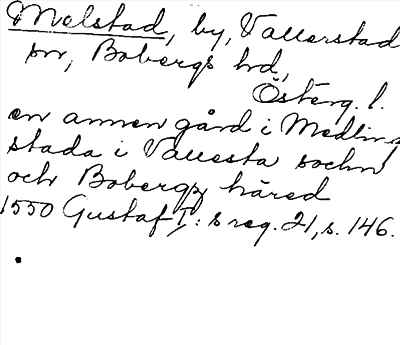 Melstad, by, Vallerstad
sn, Bobergs hrd,
Österg. l.
en annen gård i Medlin
stada i Vallesta sochn
och Bobergz häred
1550 Gustaf I: s reg. 21, s. 146.